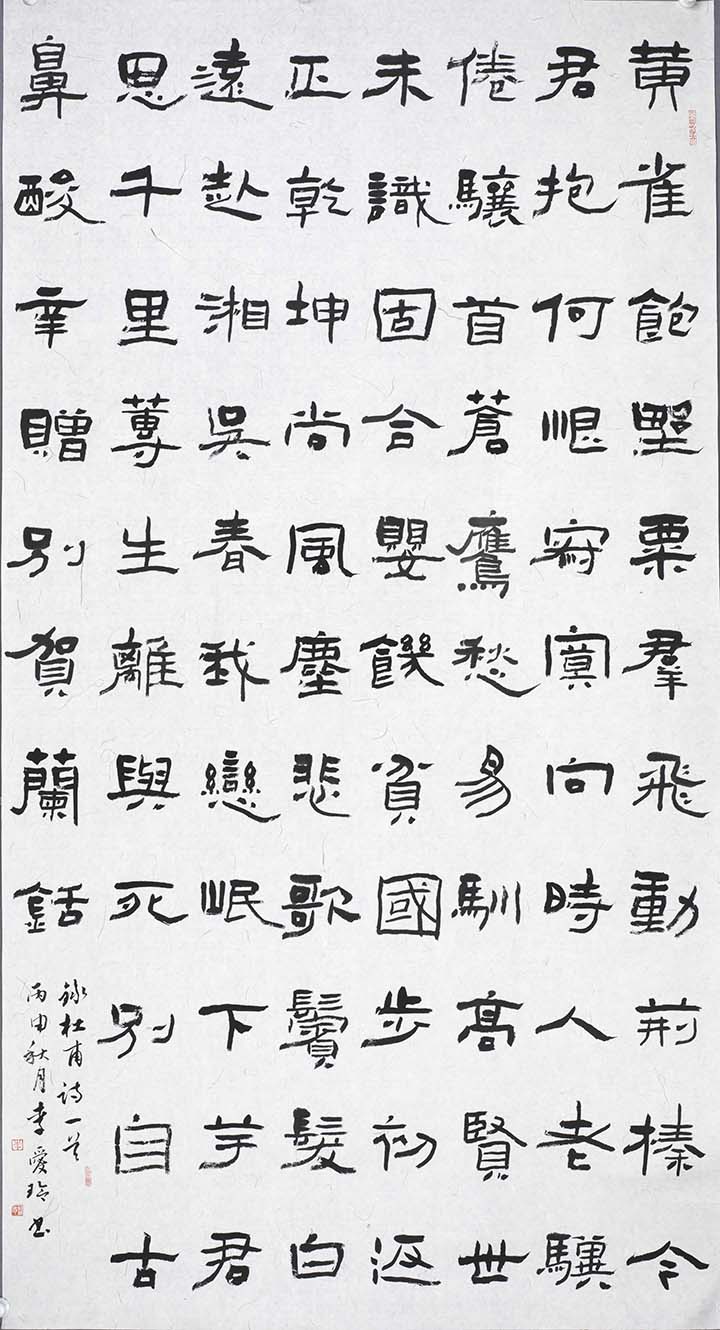 黃雀飽野粟羣飛動荊榛今
君抱何恨寂寞向時人老驥
倦驤首蒼鷹愁易馴髙賢世
未識固合嬰饑貧國步初返
正乾坤尚風塵悲歌鬢髮白
遠赴湘吳春我戀岷下芋君
思千里蓴生離與死別自古
鼻酸辛贈別賀蘭銛
錄杜甫詩一首
丙申秋月李愛玲書